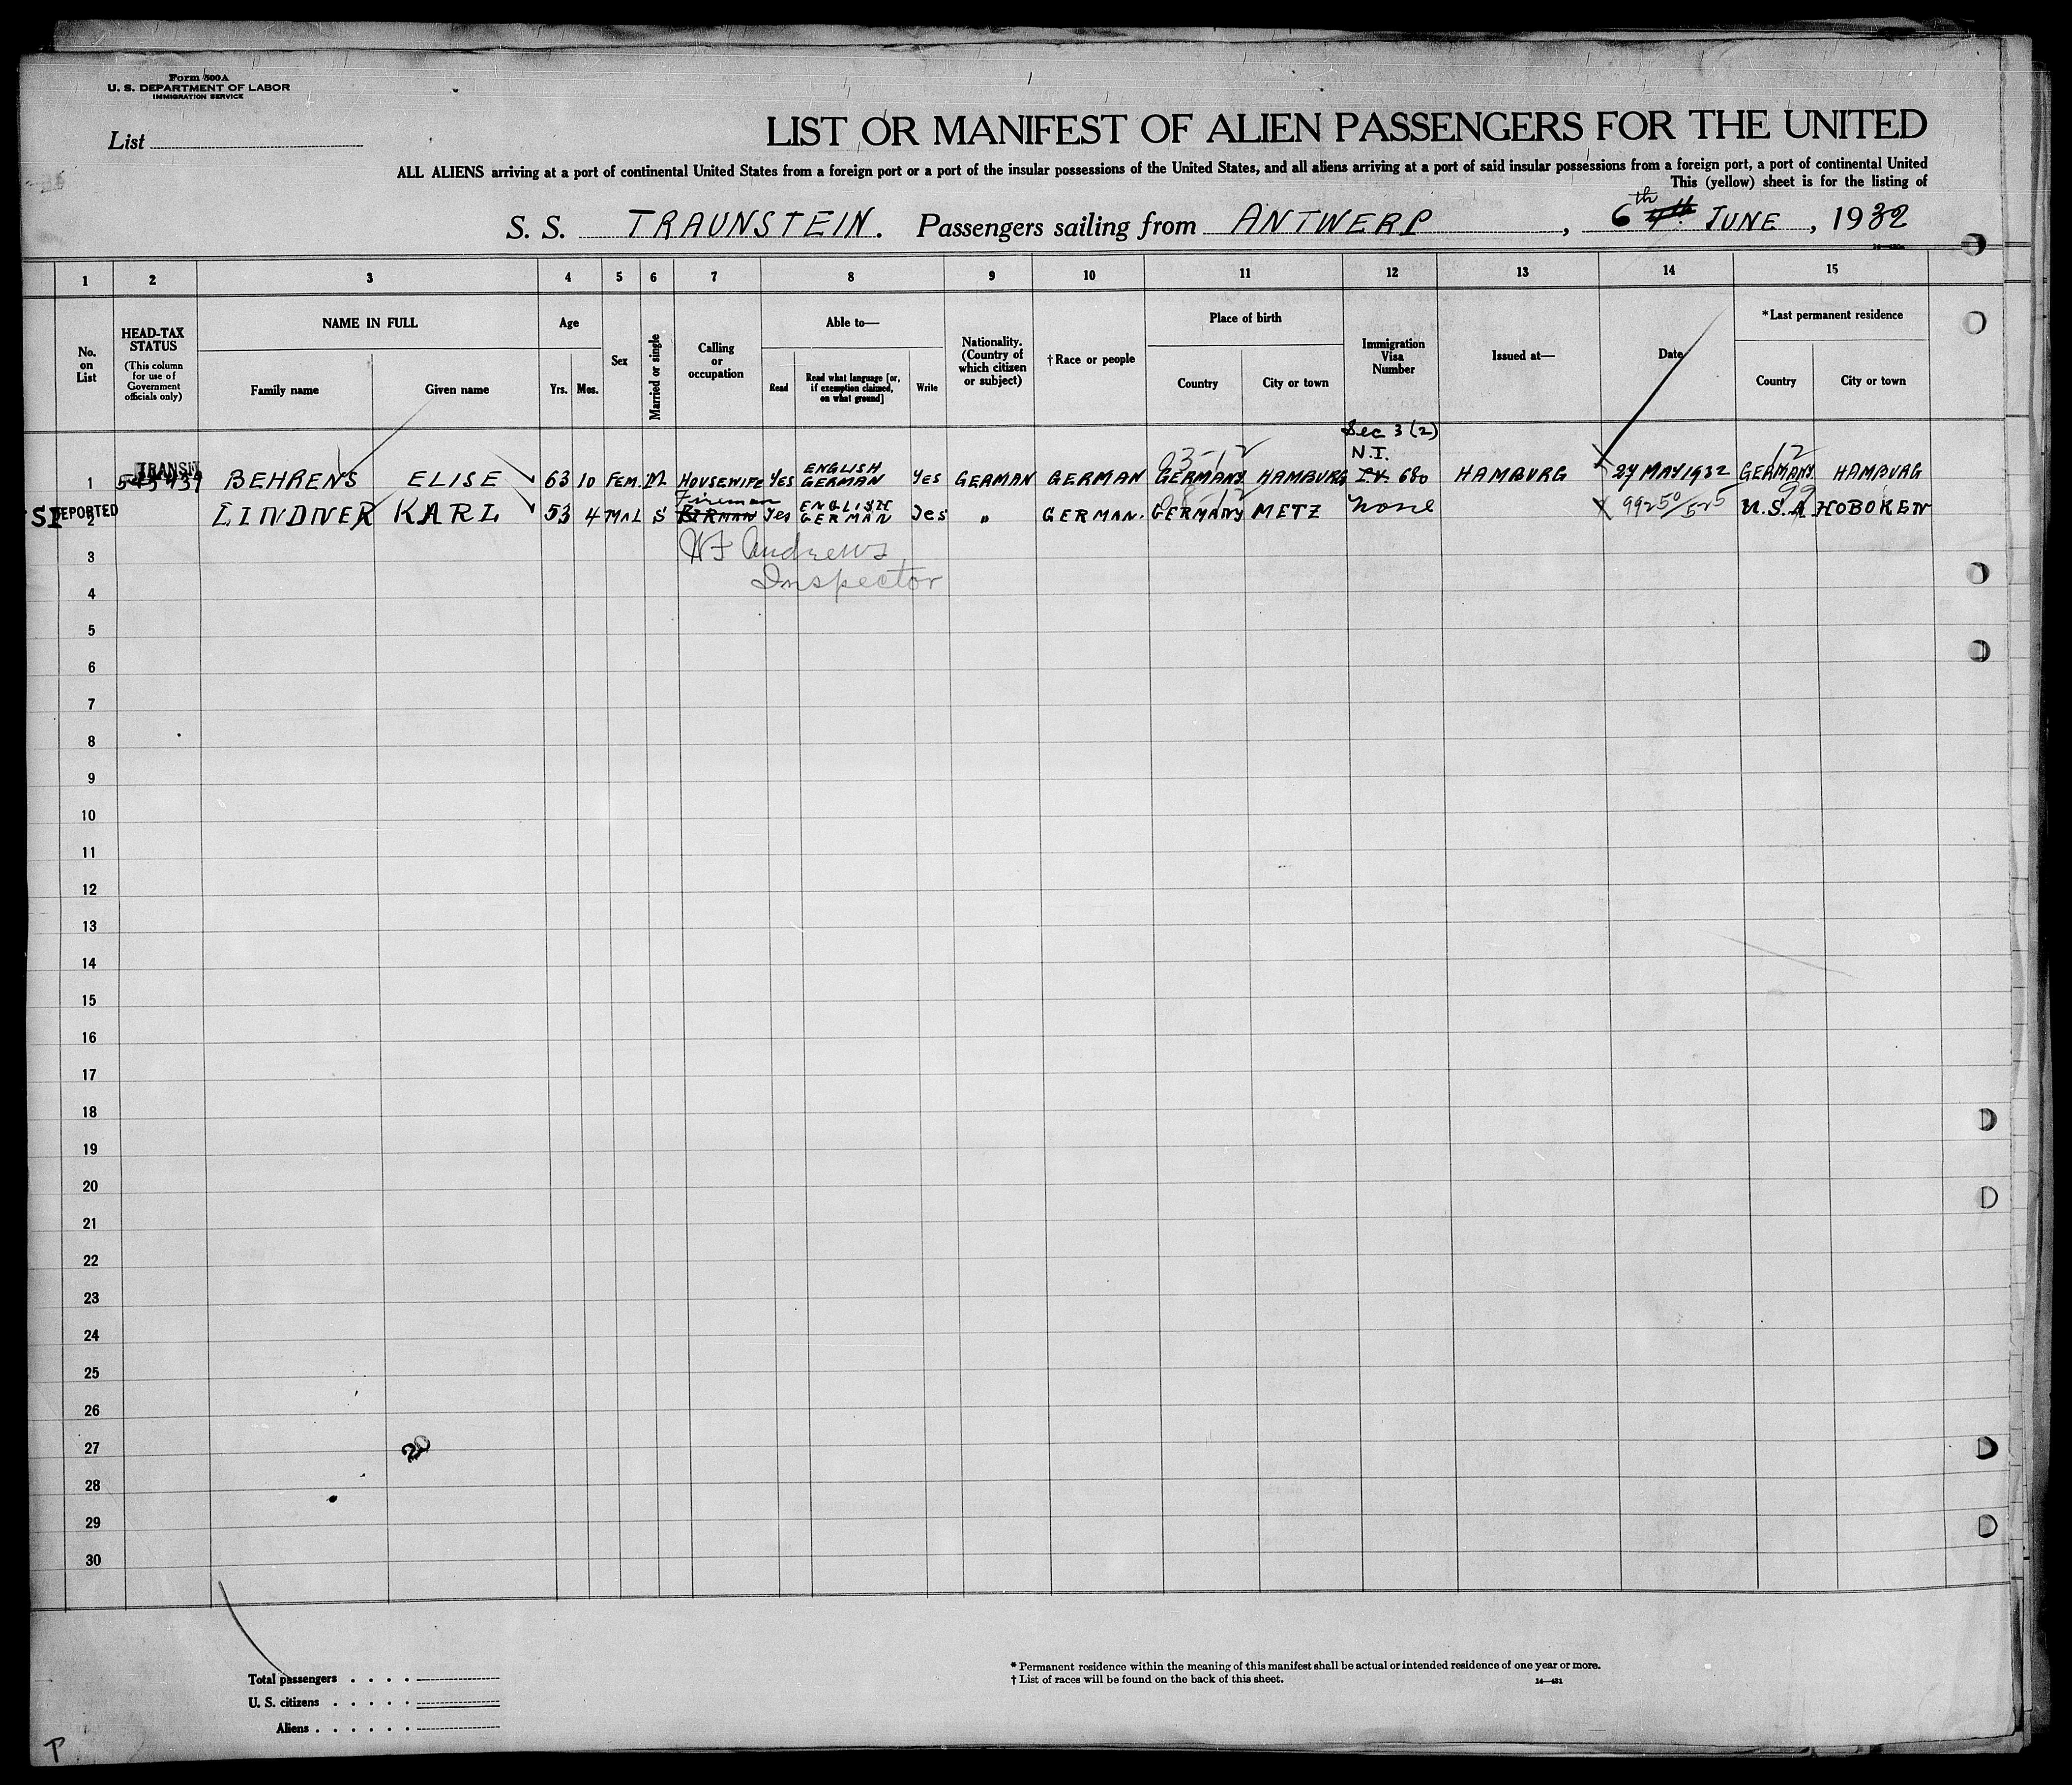 Form 500A
U. S. DEPARTMENT OF LABOR
IMMIGRATION SERVICE
List
LIST OR MANIFEST OF ALIEN PASSENGERS FOR THE UNITED
ALL ALIENS arriving at a port of continental United States from a foreign port or a port of the insular possessions of the United States, and all aliens arriving at a port of said insular possessions from a foreign port, a port of continental United
This (yellow) sheet is for the listing of
S. S. TRAUNSTEIN. Passengers sailing from ANTWERP, 6th JUNE, 1932
1 2 3 4 5 6 7 8 9 10 11 12 13 14 15
No. on List
HEAD-TAX STATUS
(This column for use of Government officials only)
NAME IN FULL
Family name Given name
Age
Yrs. Mos.
Sex
Married or single
Calling or occupation
Able to—
Read
Read what language [or, if exemption claimed, on what ground]
Write
Nationality. (Country of which citizen or subject)
†Race or people
Place of birth
Country City or town
Immigration Visa Number
Issued at—
Date
*Last permanent residence
Country City or town
Sec 3 (2)
N.I.
TRANSIT
03-12
12
1 BEHRENS ELISE 63 10 FEM. M HOUSEWIFE Yes ENGLISH GERMAN Yes GERMAN GERMAN GERMANY HAMBURG 680 HAMBURG 27 MAY 1932 GERMANY HAMBURG
SI DEPORTED
2 LINDNER KARL 53 4 MAL S Fireman Yes ENGLISH GERMAN Yes " GERMAN. GERMANY METZ None 99250/525 U.S.A HOBOKEN
99
3 HF Andrews
4 Inspector
5
6
7
8
9
10
11
12
13
14
15
16
17
18
19
20
21
22
23
24
25
26
27
28
29
30
20
Total passengers
U. S. citizens
Aliens
* Permanent residence within the meaning of this manifest shall be actual or intended residence of one year or more.
† List of races will be found on the back of this sheet.
P